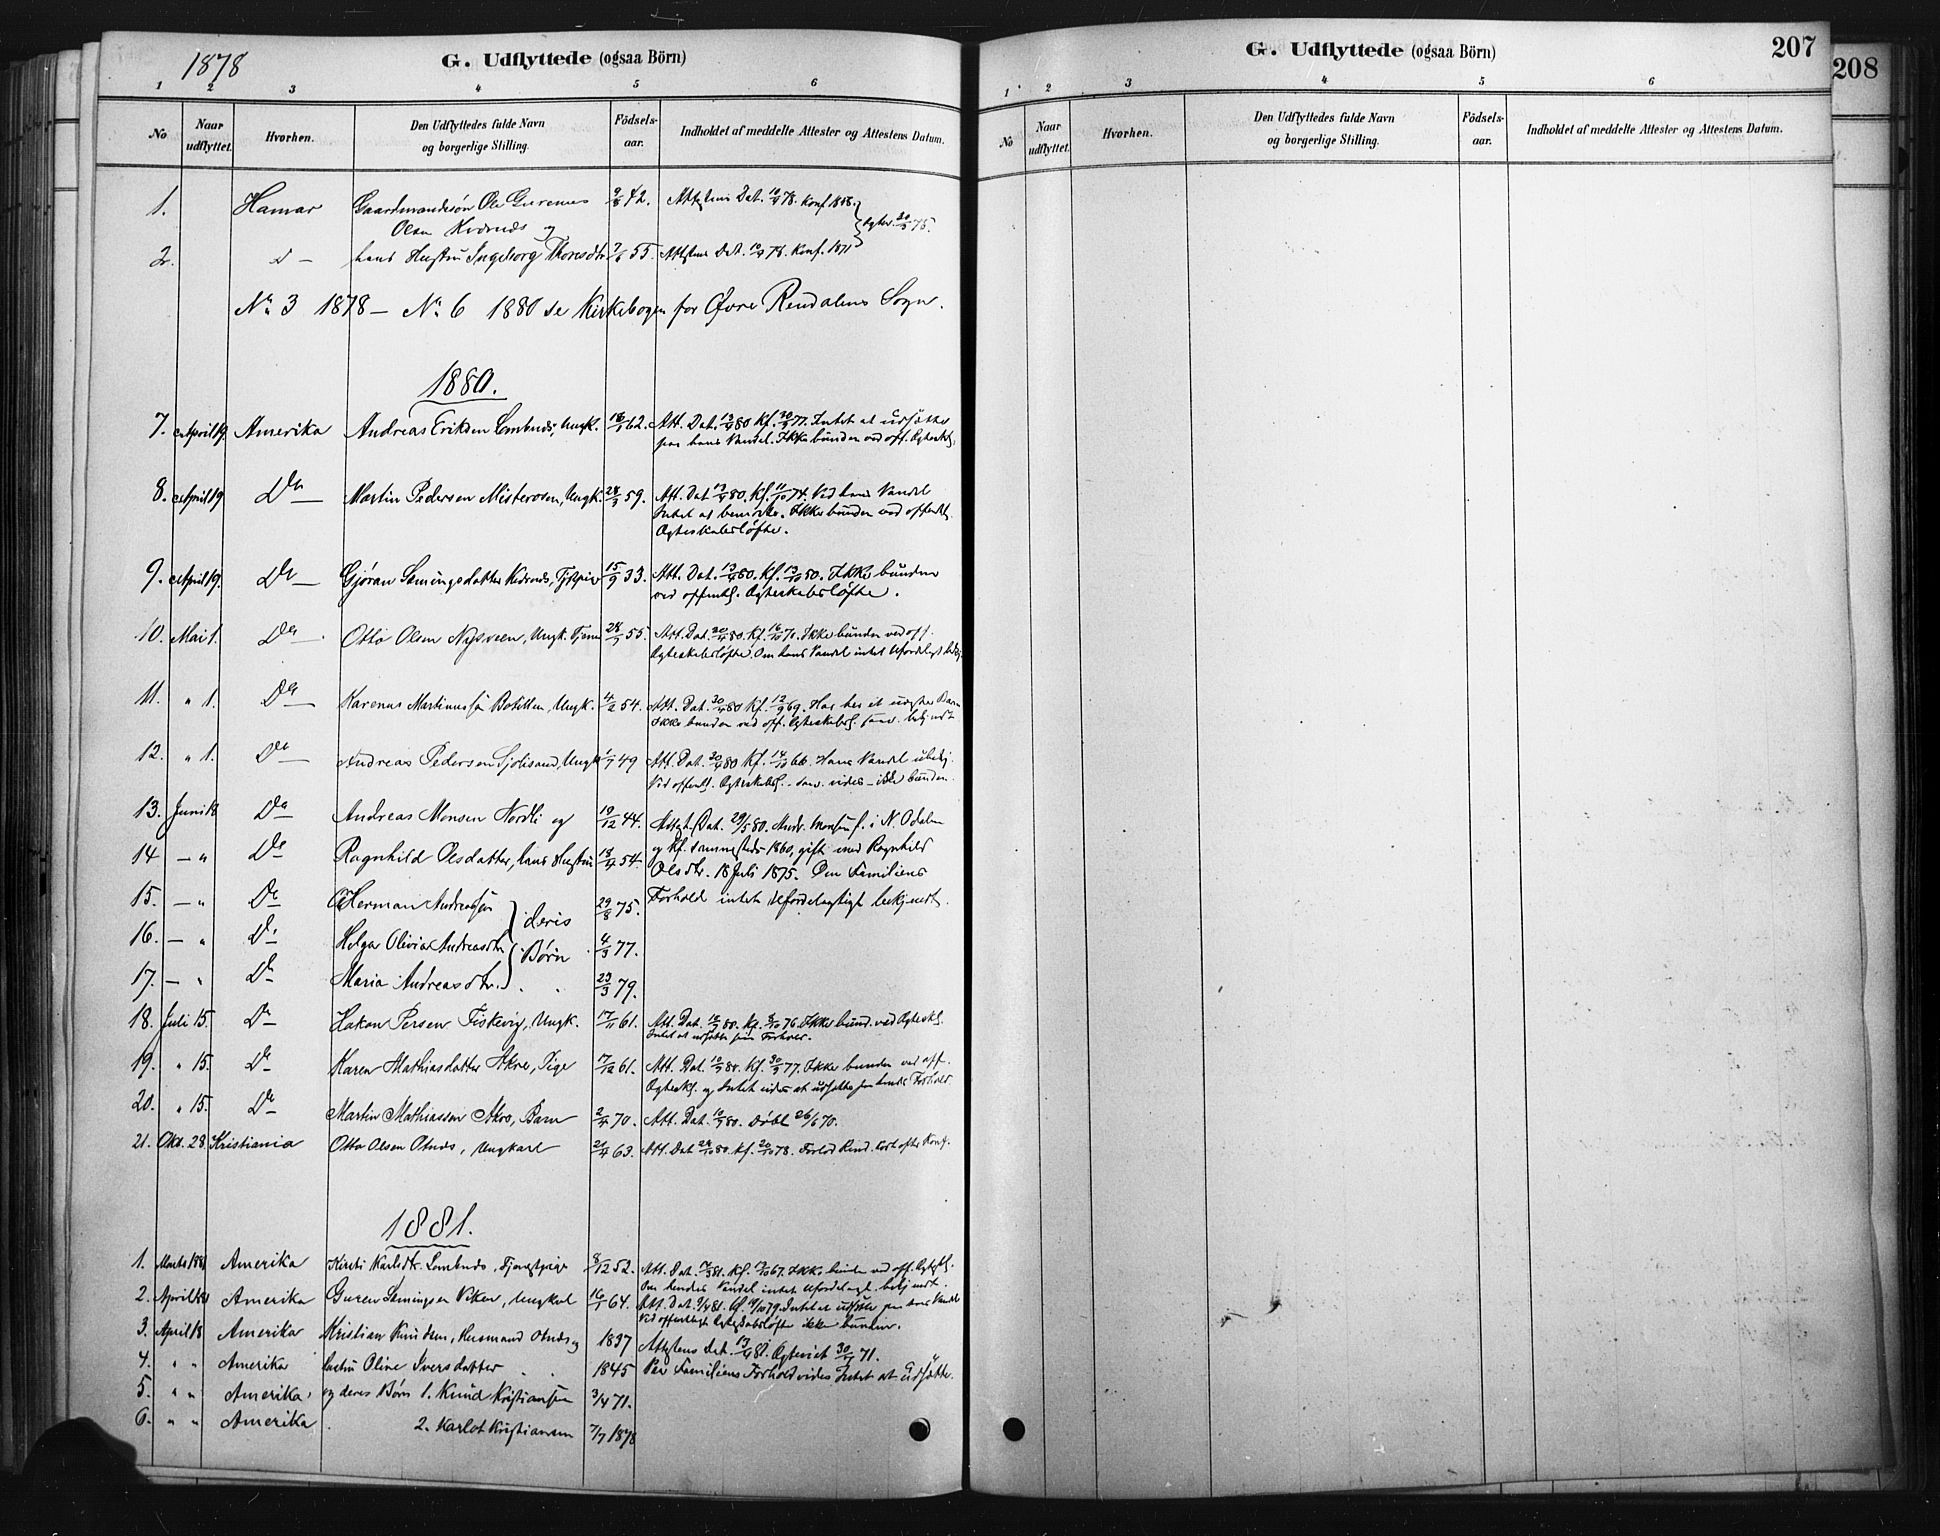 1878
G. Udflyttede (ogsaa Börn)
1 2 3 4 5 6
No
Naar udflyttet.
Hvorhen.
Den Udflyttedes fulde Navn og borgerlige Stilling.
Födsels-aar.
Indholdet af meddelte Attester og Attestens Datum.
1. Hamar Gaardmandssøn Ole 42. Attestens Dat. 78. Konf. 1858.
Olsen og
2. d - hans Hustru Ingeborg 55. Attestens Dat. 78. Konf. 1871
Ægtev. 75.
No. 3 1878 - No. 6 1880 se Kirkebogen for Øvre Rendalens Sogn.
1880.
7. April 19. Amerika Andreas Eriksen Lombnæs, Ungk. 62. Att. Dat. 13/4 80 Kf. 30/9 77. Intet at udsætte
paa hans Vandel. Ikke bunden ved off. Ægteskbl.
8. April 19 Do - Martin Pedersen Misterosen, Ungk. 59. Att. Dat 13/4 80. Kf. 11/10 74. Ved hans Vandel
Intet at bemærke. Ikke bunden ved offentl.
Ægteskabsløfte.
9. April 19. Do - Gjøran Semingsdatter 15/9 33. Att. Dat. 13/4 80. Kf. 13/10 50. Ikke bunden
ved offentl. Ægteskabsløfte.
10. Mai 1. Do - Otto Olsen Nysveen, Ungk. 55. Att. Dat. 80. Kf. 16/10 70. Ikke bunden ved off.
Ægteskabsløfte. Om hans Vandel intet Ufordelagt.
11. " 1. Do - Karenus Martinussøn Ungk. 54. Att. Dat. 30/4 80 Kf. 12/9 69. Har her et uægte Barn
Ikke bunden ved off. Ægteskabsl.
12. " 1. Do - Andreas Pedersen Sjølisand, Ungk. 49 Att. Dat. 30/4 80 Kf. 14/10 66. Hans Vandel
Ved offentl. Ægteskabsl. - ikke bunden.
13. Juni 18 Do Andreas Monsen Nordli og 19/12 44. Attest. Dat. 29/5 80. Andr. Monsen f. i N. Odalen
14 - " Do Ragnhild Olsdatter, hans Hustru 54. og Kf. sammesteds 1860, gift med Ragnhild
Olsdtr. 18 Juli 1875. Den Familiens
15. - " Do Herman Andreassøn 29/8 75. Forhold intet Ufordelagtigt bekjendt.
16. - " Do Helga Olivia Andreasdtr. 4/3 77.
17. - " Do Maria Andreasdtr. 23/3 79.
deris Børn
18. Juli 15. Do Hakon Persen Fiskevig, Ungk. 17/11 61. Att. Dat. 80. Kf. 8/10 76. Ikke bund. ved Ægteskl.
Intet at udsætte paa Forhold.
19. " 15. Do Karen Mathiasdatter Akre, Pige 61. Att. Dat. 80. Kf. 30/9 77. Ikke bunden ved off.
Ægteskl. og Intet vides at udsætte paa hendes Forhold
20. " 15. Do Martin Mathiassen Akre, Barn 2/4 70. Att. Dat. 80. Døbt 26/6 70.
21. Okt. 28 Kristiania Otto Olsen Otnæs, Ungkarl 21/4 63. Att. Dat 28/10 80. Kf. 20/10 78. Forlod Rend. kort efter Konf.
1881.
1. Amerika Kirsti Karlsdtr. Lombnæs, Tjenestpige 8/12 52. Att. Dat. 81. Kf. 67. Ikke bunden ved off. Ægtskl.
Om hendes Vandel intet Ufordelagt. bekjendt.
2. April Amerika Guren Semingsen Viken, Ungkarl 64. Att. Dat. 81. Kf. 79. Intet at udsætte paa hans Vandel
Ved offentligt Ægteskabsløfte ikke bunden.
3. April 18 Amerika Kristian Knudsen, Husmand Otnæs og 1837 Attestens dat. 13/4 81. Ægteviet 30/4 71.
4. " " Amerika Hustru Oline Iversdatter 1845 Paa Familiens Forhold vides Intet at Udsætte.
5. " " Amerika. og deres Børn 1. Knud Kristiansen 3/4 71.
6. " " Amerika 2. Karlot Kristiansen 7/7 1878
G. Udflyttede (ogsaa Börn)
207
208
1 2 3 4 5 6
No
Naar udflyttet.
Hvorhen.
Den Udflyttedes fulde Navn og borgerlige Stilling.
Födsels-aar.
Indholdet af meddelte Attester og Attestens Datum.